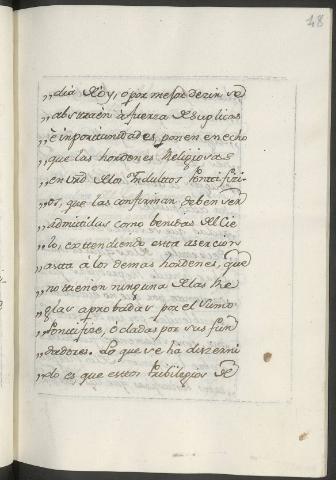 48
„dia de oy, o por mejor dezir se
„abstraèn à fuerza de suplicas
„è inportunidades, ponen en echo
„que las hordenes Religiosas
„en vrd. de los Indultos Pontifizi-
„os, que las confirman deben ser
„admitidas como benidas del Cie
„lo, extendiendo esta asercion
„asta à los demas hordenes, que
„no tienen ninguna de las Re
„glas aprobadas por el Sumo
„Pontifize, ò dadas por sus fun
„dadores. Lo que se ha diszerni
„do es, que estos Pribilegios de